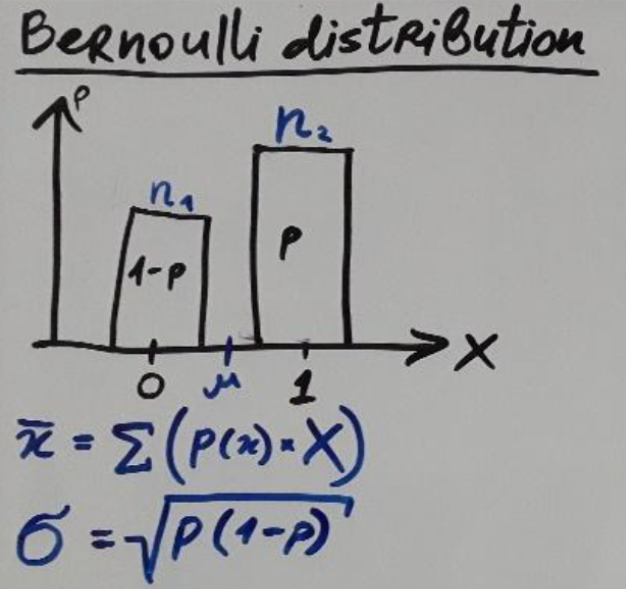 Bernoulli distribution
P
n₂
n₁
p
1-p
0 μ 1 X
x̄ = Σ(P(x)·X)
σ = √p(1-p)